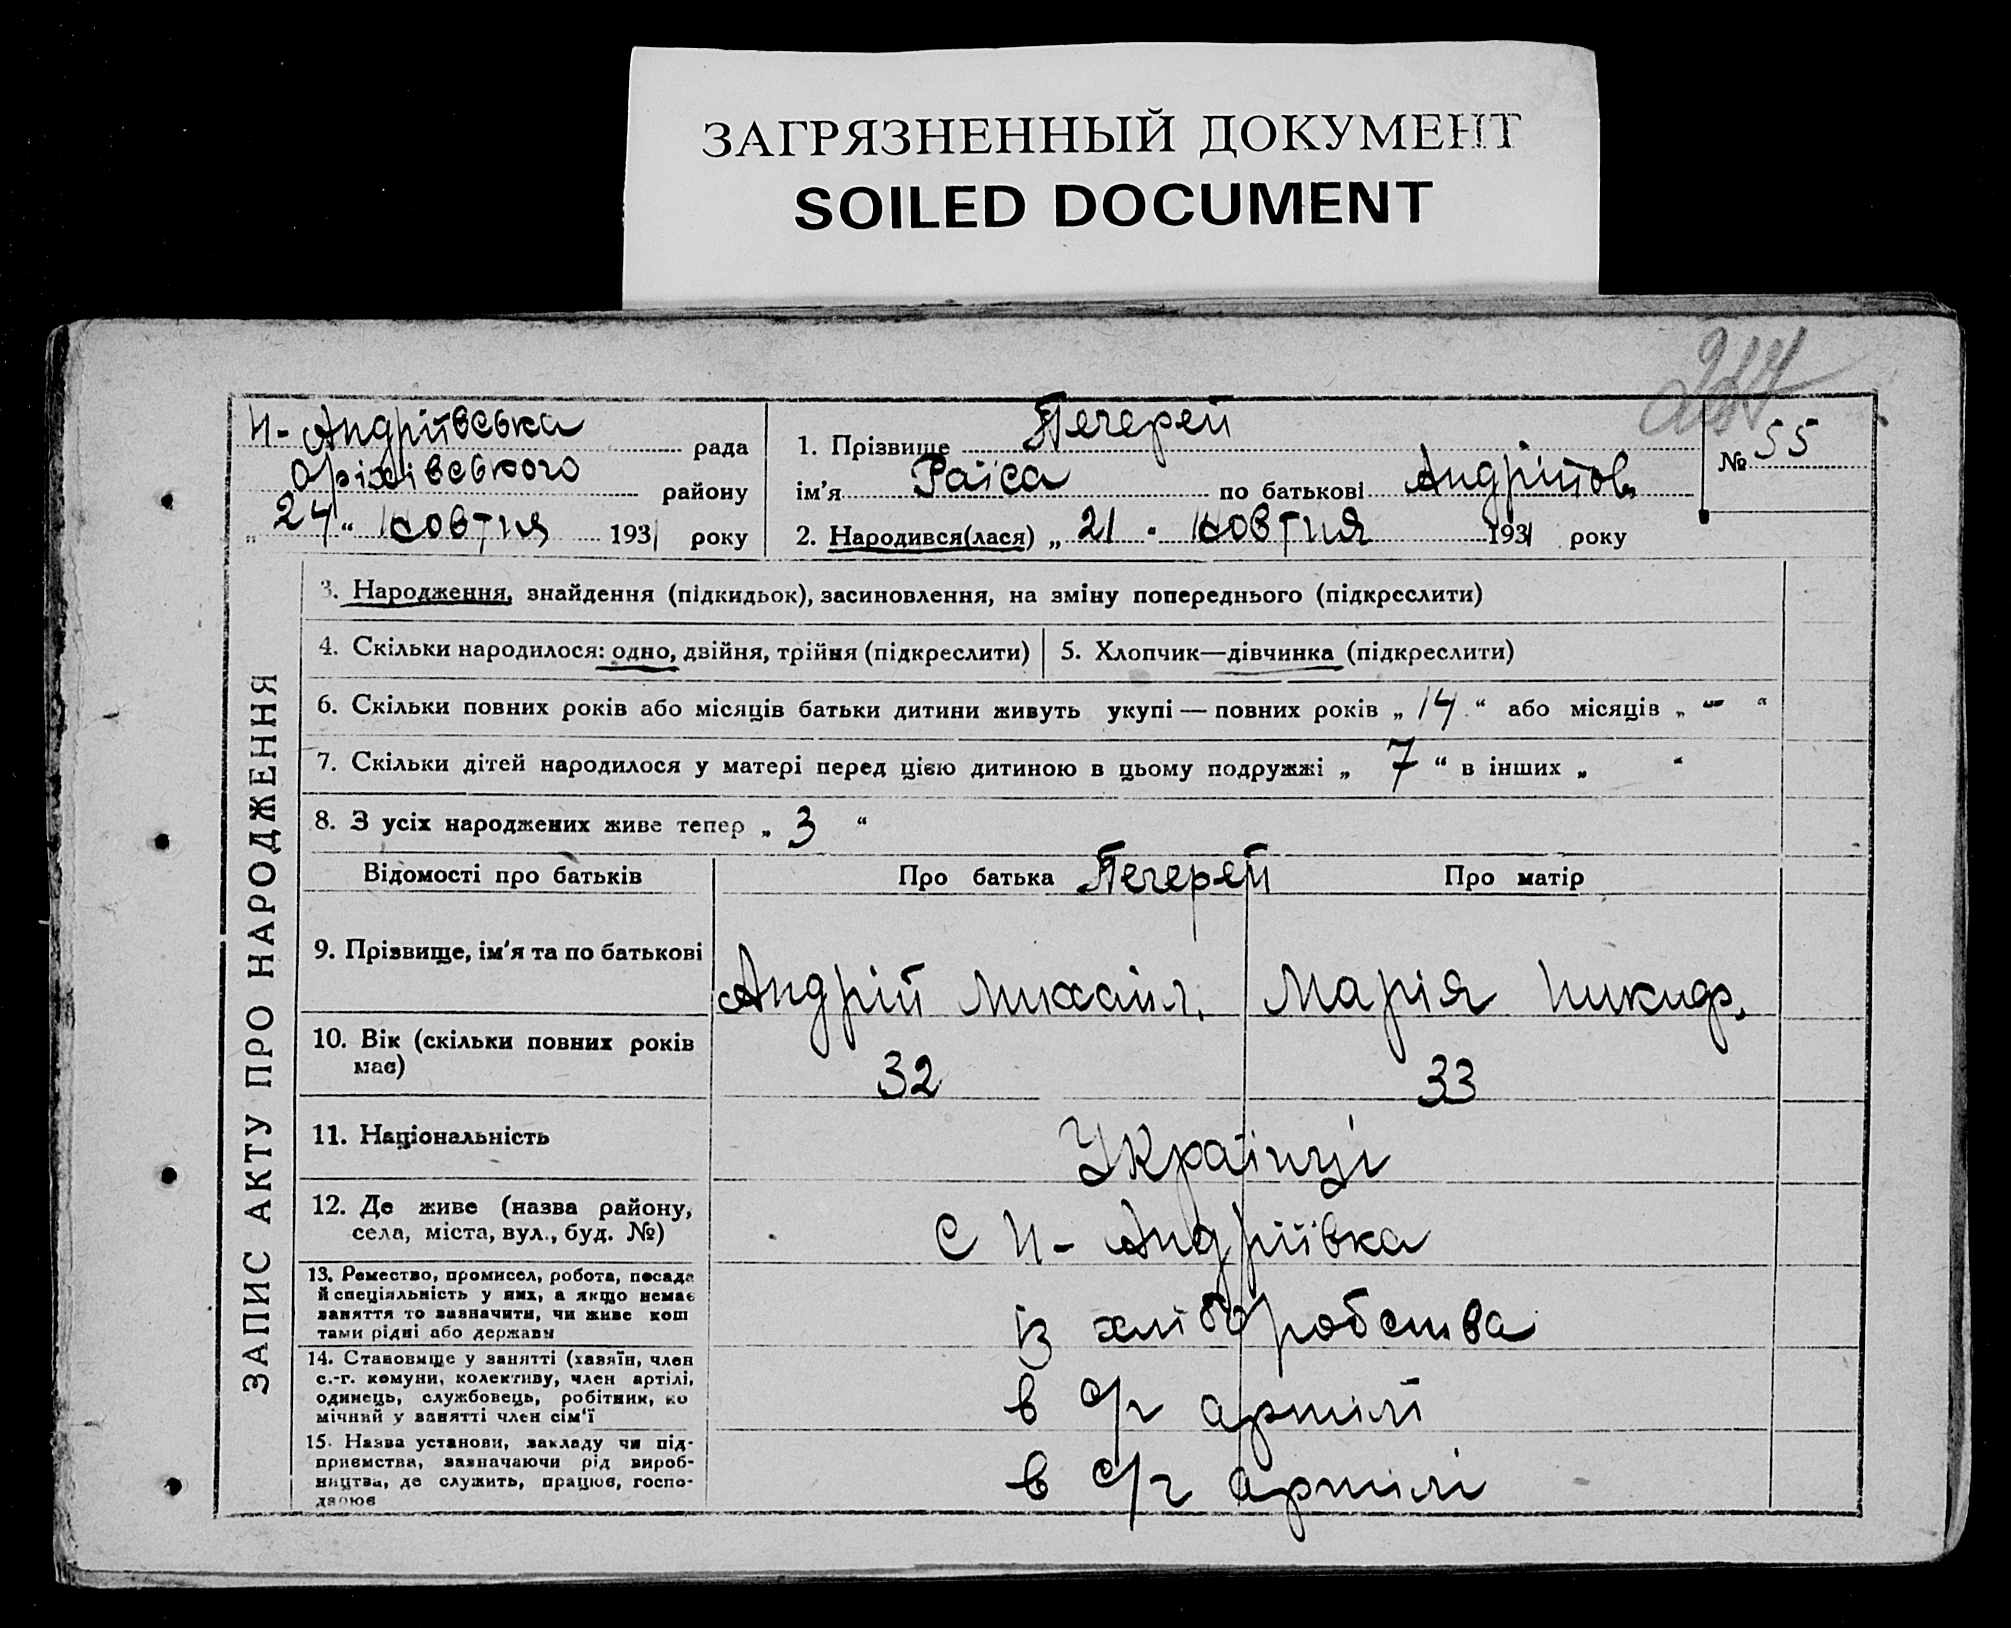 ЗАГРЯЗНЕННЫЙ ДОКУМЕНТ
SOILED DOCUMENT
Н-Андріївська рада
Оріхівського району
„24“ жовтня 1931 року
1. Прізвище Печерей
ім'я Раїса по батькові Андріїов.
2. Народився(лася) „21 " жовтня 1931 року
№ 55
ЗАПИС АКТУ ПРО НАРОДЖЕННЯ
3. Народження, знайдення (підкидьок), засиновлення, на зміну попереднього (підкреслити)
4. Скільки народилося: одно, двійня, трійня (підкреслити)
5. Хлопчик—дівчинка (підкреслити)
6. Скільки повних років або місяців батьки дитини живуть укупі — повних років „ 14 “ або місяців „ — “
7. Скільки дітей народилося у матері перед цією дитиною в цьому подружжі „ 7 “ в інших „ “
8. З усіх народжених живе тепер „ 3 “
Відомості про батьків
Про батька Печерей Про матір
9. Прізвище, ім'я та по батькові
Андрій Михайл. Марія Никиф.
10. Вік (скільки повних років
має)
32 33
11. Національність
Українці
12. Де живе (назва району,
села, міста, вул., буд. №)
С Н-Андріївка
13. Ремество, промисел, робота, посада
й спеціяльність у них, а якщо немає
заняття то зазначити, чи живе кош
тами рідні або держави
із хліборобства
14. Становище у занятті (хазяїн, член
с.-г. комуни, колективу, член артілі,
одинець, службовець, робітник, по
мічний у занятті член сім'ї
в с/г артілі
15. Назва установи, закладу чи під-
приємства, зазначаючи рід вироб-
ництва, де служить, працює, госпо-
дарює
в с/г артілі